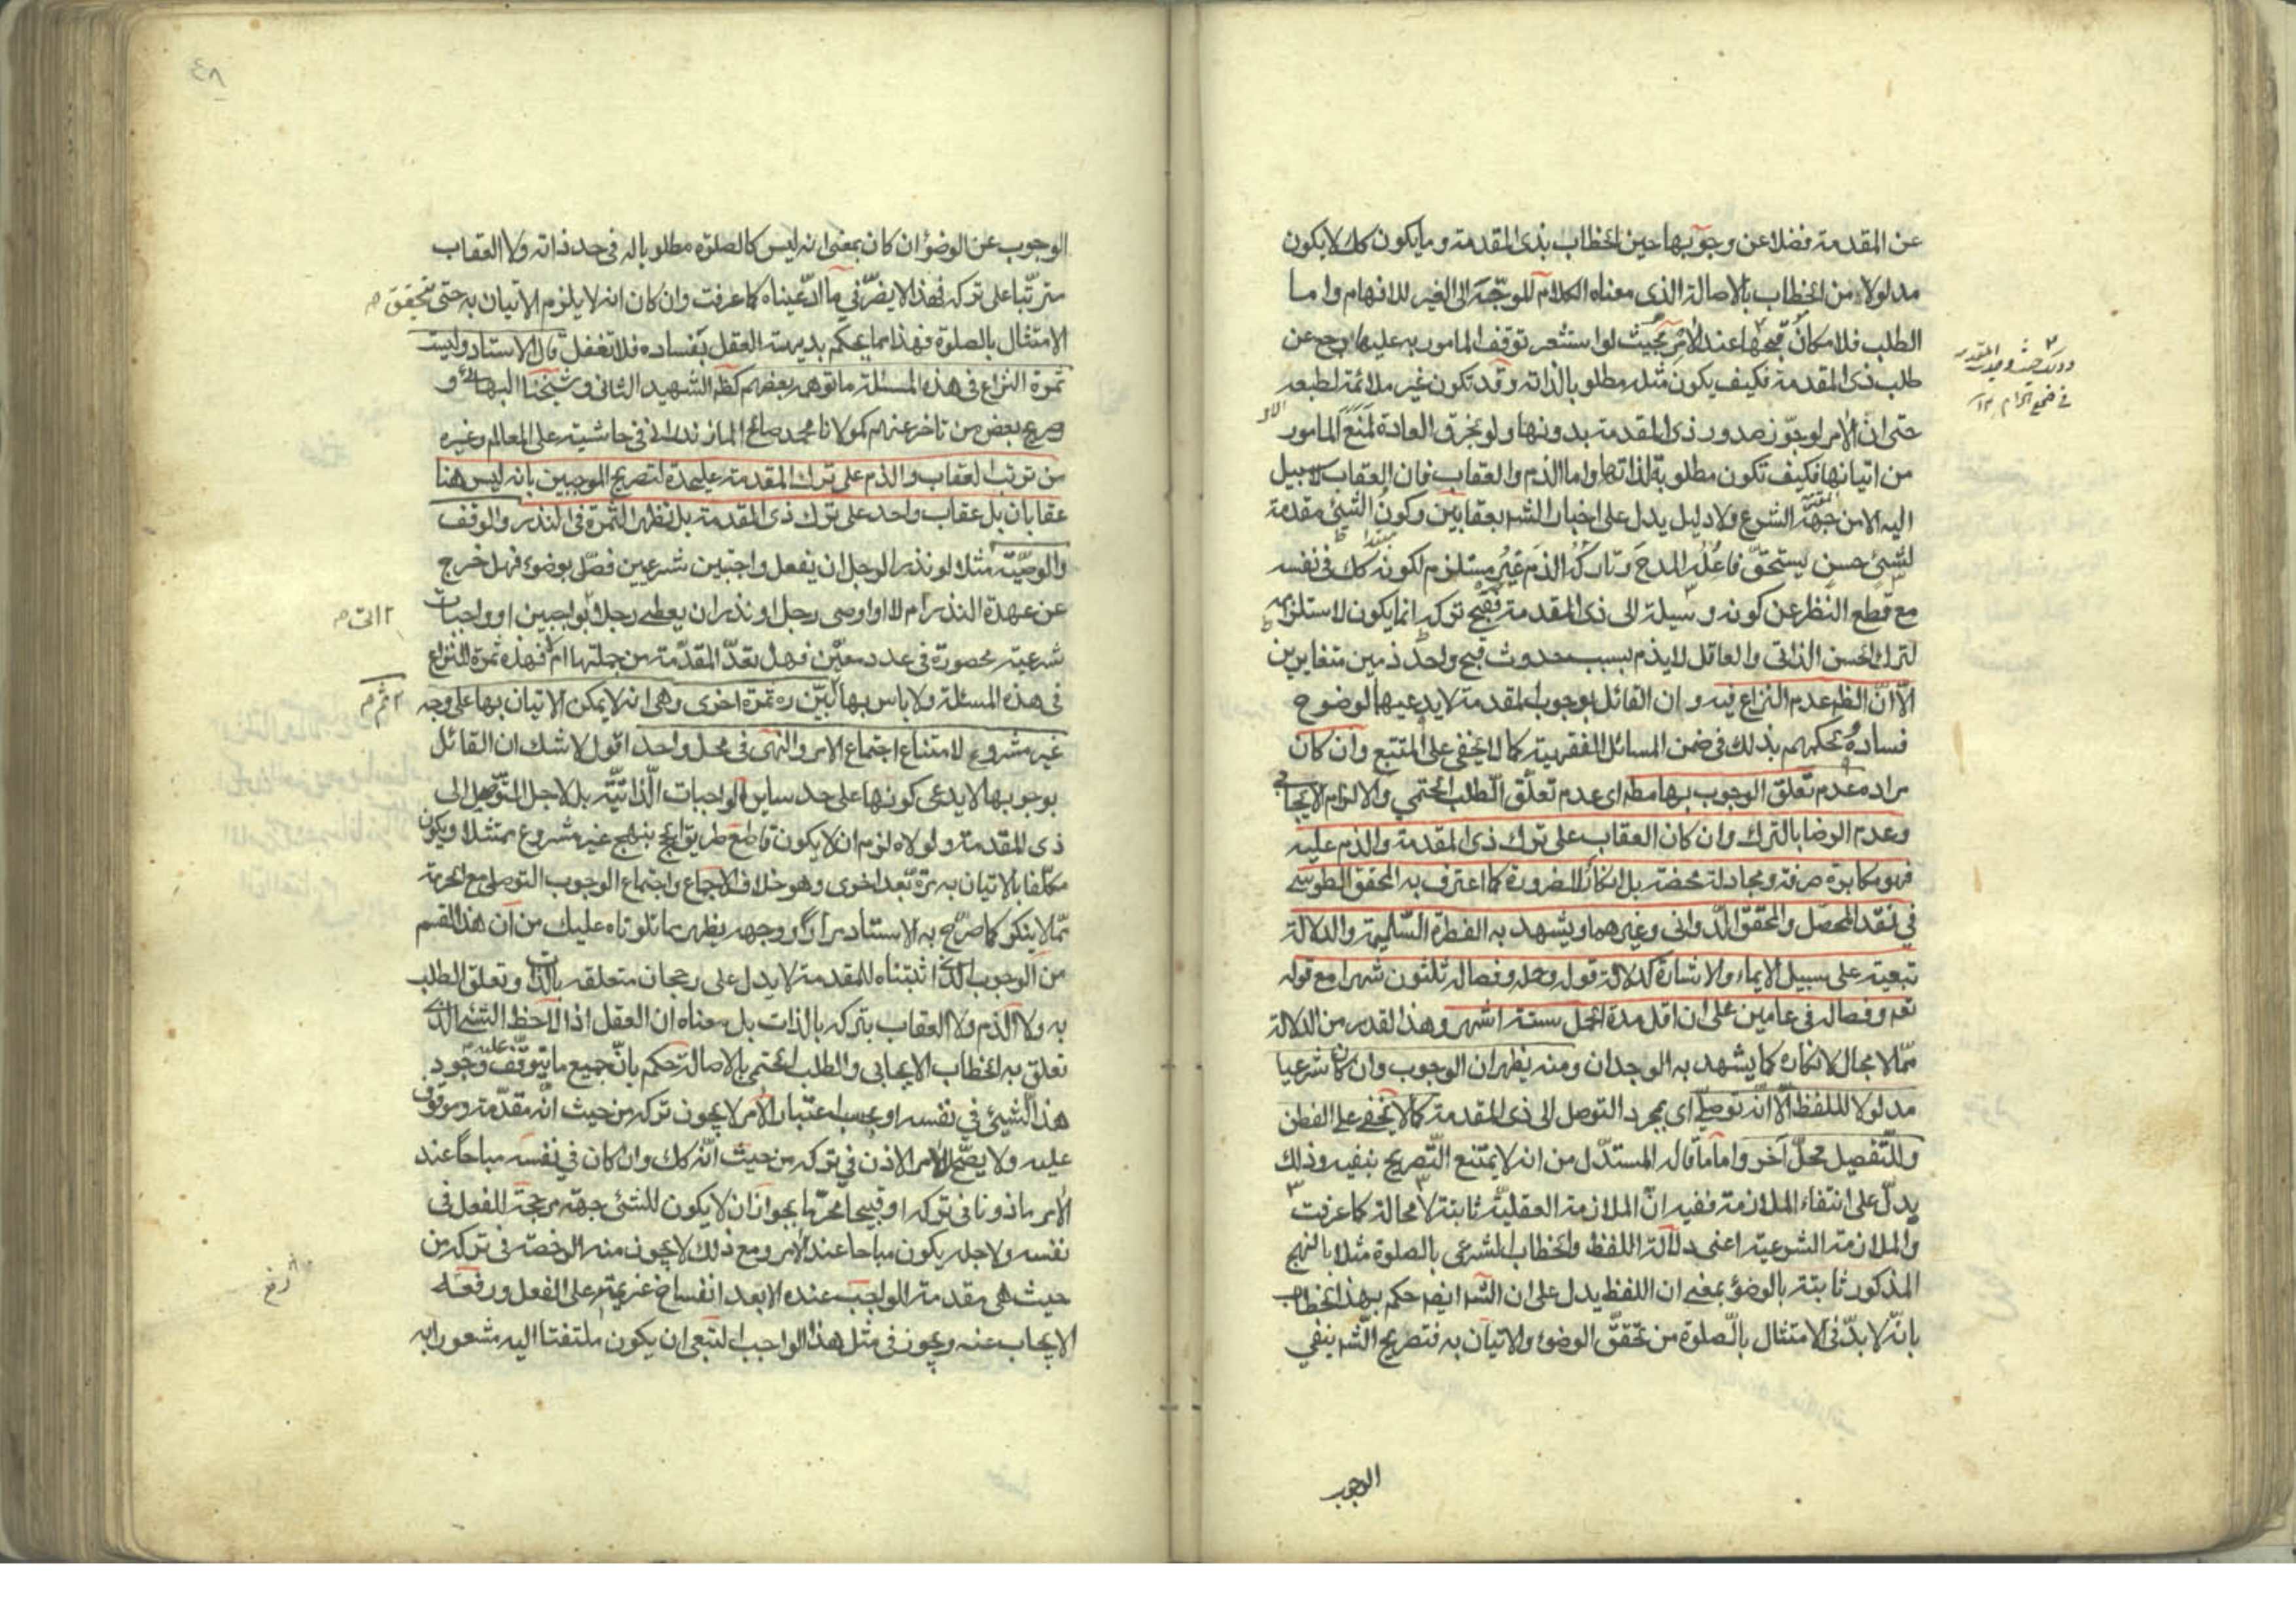 عن المقدمة فضلا عن وجوبها حين الخطاب بذى المقدمة وما يكون كك لا يكون
مدلولا من الخطاب بالاصالة الذى معناه الكلام الموجّه الى الغير للافهام واما
الطلب فلامكان قبحها عند الآمر بحيث لو استشعر توقف المامور به عليها رجع عن
طلب ذى المقدمة فكيف يكون مثله مطلوبا بالذات وقد تكون غير ملائمة لطبعه
حتى ان الآمر لو جوّز صدور ذى المقدمة بدونها ولو بخرق العادة لمنع المامور
من اتيانها فكيف تكون مطلوبة لذاتها واما الذم والعقاب فان العقاب لا سبيل
اليه الا من جهة الشرع ولا دليل يدل على اخبار الشه بعقابين وكون الشيئ مقدمة
لشيئ حسن يستحقّ فاعله المدح وتاركه الذم غير مستلزم لكونه كك فى نفسه
مع قطع النظر عن كونه وسيلة الى ذى المقدمة فقبح تركه انما يكون لاستلزامه
لترك الحسن الذاتى والعاقل لا يذم بسبب حدوث قبح واحد ذمين متغايرين
الّا انّ الظه عدم النزاع فيه وان القائل بوجوب المقدمة لا يدعيها لوضوح
فساده وحكمهم بذلك فى ضمن المسائل الفقهية كما لا يخفى على المتتبع وان كان
مراده عدم تعلّق الوجوب بها مطه اى عدم تعلّق الطلب الحتمي والالزام الايجابى
وعدم الرضا بالترك وان كان العقاب على ترك ذى المقدمة والذم عليه
فهو مكابرة صرفة ومجادلة محضة بل انكار للضرورة كما اعترف به المحقق الطوسى
فى نقد المحصّل والمحقق الدّوانى وغيرهما ويشهد به الفطرة السّليمة والدلالة
تبعية على سبيل الايماء والاشارة كدلالة قوله وحمله وفصاله ثلثون شهرا مع قوله
تعه وفصاله فى عامين على ان اقل مدة الحمل ستة اشهر وهذا القدر من الدلالة
ممّا لا مجال لانكاره كما يشهد به الوجدان ومنه يظهر ان الوجوب وان كان شرعيا
مدلولا لللفظ الّا انّه توصلى اى بمجرد التوصل الى ذى المقدمة كما لا يخفى على الفطن
وللتّفصيل محلّ آخر واما ما قاله المستدّل من انه لا يمتنع التّصريح بنفيه وذلك
يدلّ على انتفاء الملازمة ففيه انّ الملازمة العقليّة ثابتة لا محالة كما عرفت
والملازمة الشرعية اعنى دلالة اللفظ والخطاب الشرعى بالصلوة مثلا بالنهج
المذكور ثابتة بالوضوء بمعنى ان اللفظ يدل على ان الشه ايضه حكم بهذا الخطاب
بانّه لا بدّ فى الامتثال بالصلوة من تحقّق الوضوء والاتيان به فتصريح الشه بنفي
الوجوب
٤٨
الوجوب عن الوضوء ان كان بمعنى انه ليس كالصلوة مطلوبا له فى حد ذاته ولا العقاب
مترتّبا على تركه فهذا لا يضرّ فى ما ادّعيناه كما عرفت وان كان انه لا يلزم الاتيان به حتى يتحقق
الامتثال بالصلوة فهذا مما يحكم بديهة العقل بفساده فلا تغفل قال الاستاد وليست
ثمرة النزاع فى هذه المسئلة ما توهمه بعضهم كظه الشهيد الثانى وشيخنا البهائى و
صريح بعض من تاخر عنهم كمولانا محمد صالح المازندرانى فى حاشيته على المعالم وغيره
من ترتب العقاب والذم على ترك المقدمة عليحدة لتصريح الموجبين بانه ليس هنا
عقابان بل عقاب واحد على ترك ذى المقدمة بل تظهر الثمرة فى النذر والوقف
والوصيّة مثلا لو نذر الرجل ان يفعل واجبين شرعيين فصلّ بوضوء فهل خرج
عن عهدة النذر ام لا او اوصى رجل او نذر ان يعطى رجلا بواجبين او واجبات
شرعية محصورة فى عدد معيّن فهل تعدّ المقدّمة من جملتها ام لا فهذه ثمرة للنزاع
فى هذه المسئلة ولا باس بها ثم بيّن ره ثمرة اخرى وهى انه لا يمكن الاتيان بها على وجه
غير مشروع لامتناع اجتماع الامر والنهى فى محل واحد اقول لا شك ان القائل
بوجوبها لا يدعى كونها على حد ساير الواجبات الذّاتيّة بل لاجل التّوصّل الى
ذى المقدمة ولولاه لزم ان لا يكون قاطع طريق الحج بنهج غير مشروع ممتثلا ويكون
مكلّفا بالاتيان به مرّة بعد اخرى وهو خلاف الاجماع واجتماع الوجوب التوصلى مع الحرمة
ممّا لا ينكر كما صرّح به الاستاد مرارا ووجهه يظهر بما تلوناه عليك من ان هذا القسم
من الوجوب الذى اثبتناه للمقدمة لا يدل على رجحان متعلقه بالذات وتعلق الطلب
به ولا الذم ولا العقاب بتركه بالذات بل معناه ان العقل اذا لاحظ الشيئ الذى
تعلق به الخطاب الايجابى والطلب الحتمى بالاصالة حكم بانّ جميع ما يتوقّف عليه وجود
هذا الشيئ فى نفسه او بحسب اعتبار الآمر لا يجوز تركه من حيث انّه مقدّمة وموقوف
عليه ولا يصحّ للآمر الاذن فى تركه من حيث انّه كك وان كان فى نفسه مباحا عند
الآمر ماذونا فى تركه او قبيحا محرّما بجواز ان لا يكون للشئ جهة مرجحة الفعل فى
نفسه ولاجله يكون مباحا عند الآمر ومع ذلك لا يجوز منه الرخصة فى تركه من
حيث هى مقدمة الواجب عنده الا بعد انفساخ عزيمته على الفعل ورفعه
الايجاب عنه ويجوز فى مثل هذا الواجب التبعى ان يكون ملتفتا اليه مشعورا به